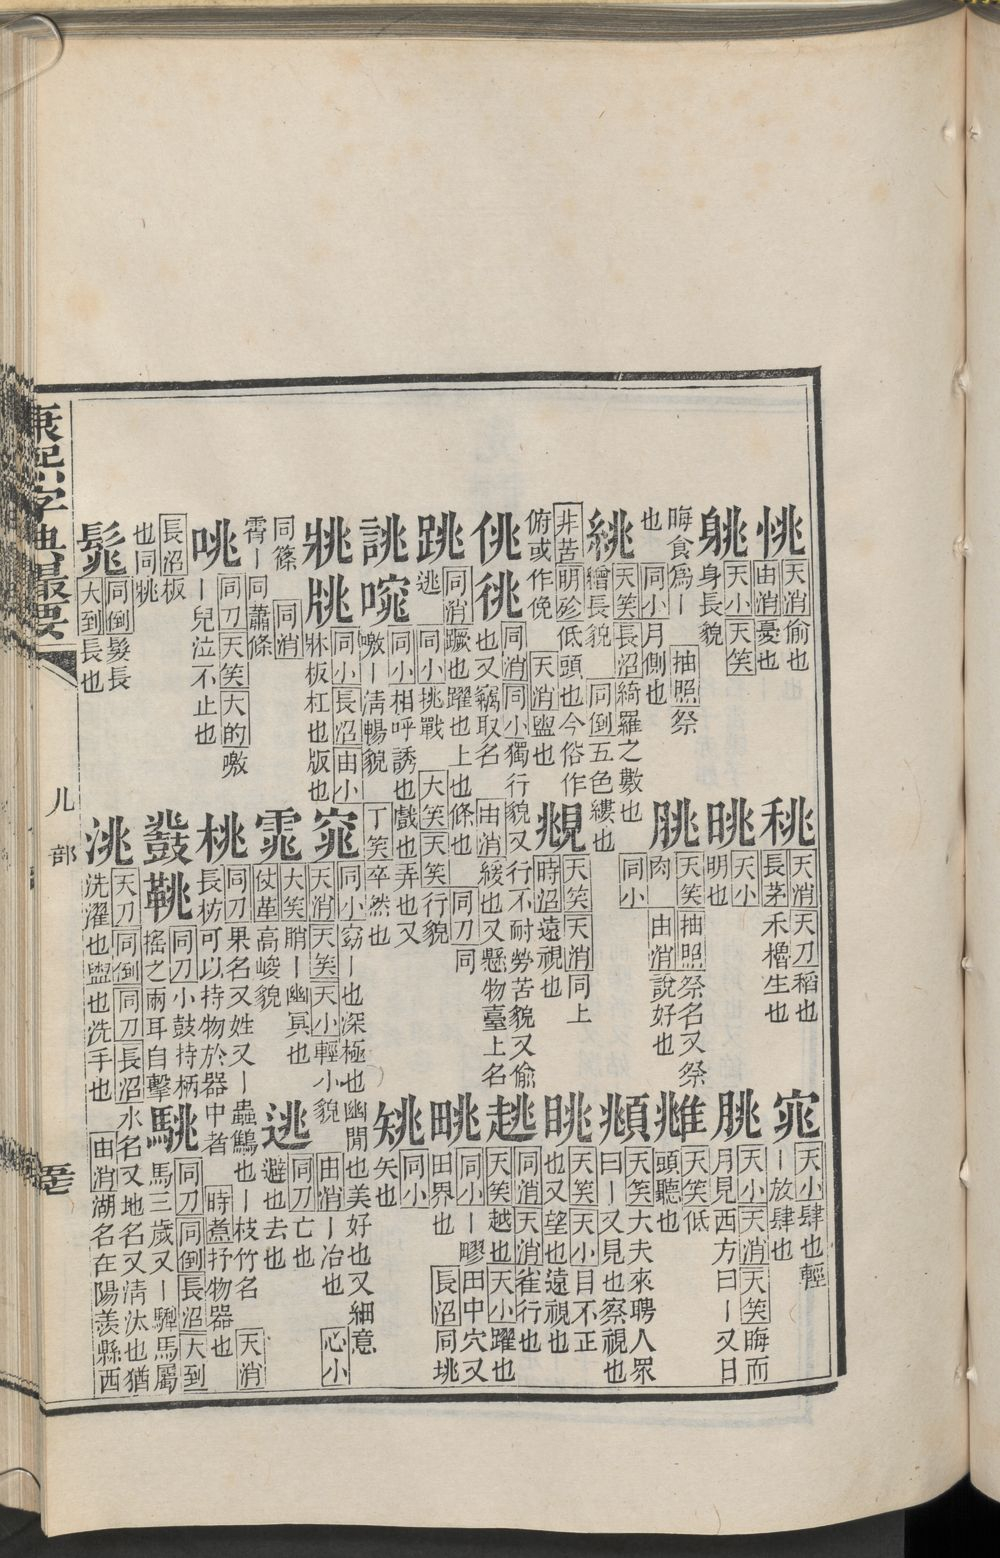 恌 天消偷也
由消憂也
䄻 天消天刀稻也
長茅禾櫓生也
窕 天小肆也輕
ー放肆也
䠷 天小天笑
身長貌
晀 天小
明也
朓 天小天消天笑晦而
月見西方曰ー又日
晦食爲ー 抽照祭
也 同小月側也
朓 天笑抽照祭名又祭
肉 由消說好也
天笑低
頭聽也
絩 天笑長沼綺羅之數也 同小
繒長貌 同倒五色縷也
頫 天笑大夫來聘人眾
曰ー又見也察視也
非苦明殄低頭也今俗作
俯或作俛 天消盥也
覜 天笑天消同上
時沼遠視也
眺 天笑天小目不正
也又望也遠視也
佻 㣮 同消同小獨行貌又行不耐勞苦貌又偷
也又竊取名 由消緩也又懸物臺上名
趒 同消天消雀行也
天笑越也天小躍也
跳 同消蹶也躍也上也條也 同刀同
逃 同小挑戰 大笑天笑行貌
同小ー疁田中穴又
田界也 長沼同垗
誂 同小相呼誘也戲也弄也又
噭ー淸暢貌 丁笑卒然也
同小
矢也
同小長沼由小
牀板杠也版也
窕 同小窈ー也深極也幽閒也美好也又細意
天消天笑天小輕小貌 由消ー冶也 心小
同篠 同消
霄ー同蕭條
大笑䏴ー幽冥也
仗革高峻貌
逃 同刀亡也
避也去也
咷 同刀天笑大的噭
ー兒泣不止也
桃 同刀果名又姓又ー蟲鷦也ー枝竹名 天消
長枋可以持物於器中者 時煮抒物器也
長沼板
也同
鼗 鞉 同刀小鼓持柄
搖之兩耳自擊
駣 同刀同倒長沼大到
馬三歲又ー驒馬屬
同倒髮長
大到長也
洮 天刀同倒同刀長沼水名又地名又淸汰也猶
洗濯也盥也洗手也 由消湖名在陽羨縣西
康熙字典撮要
儿部